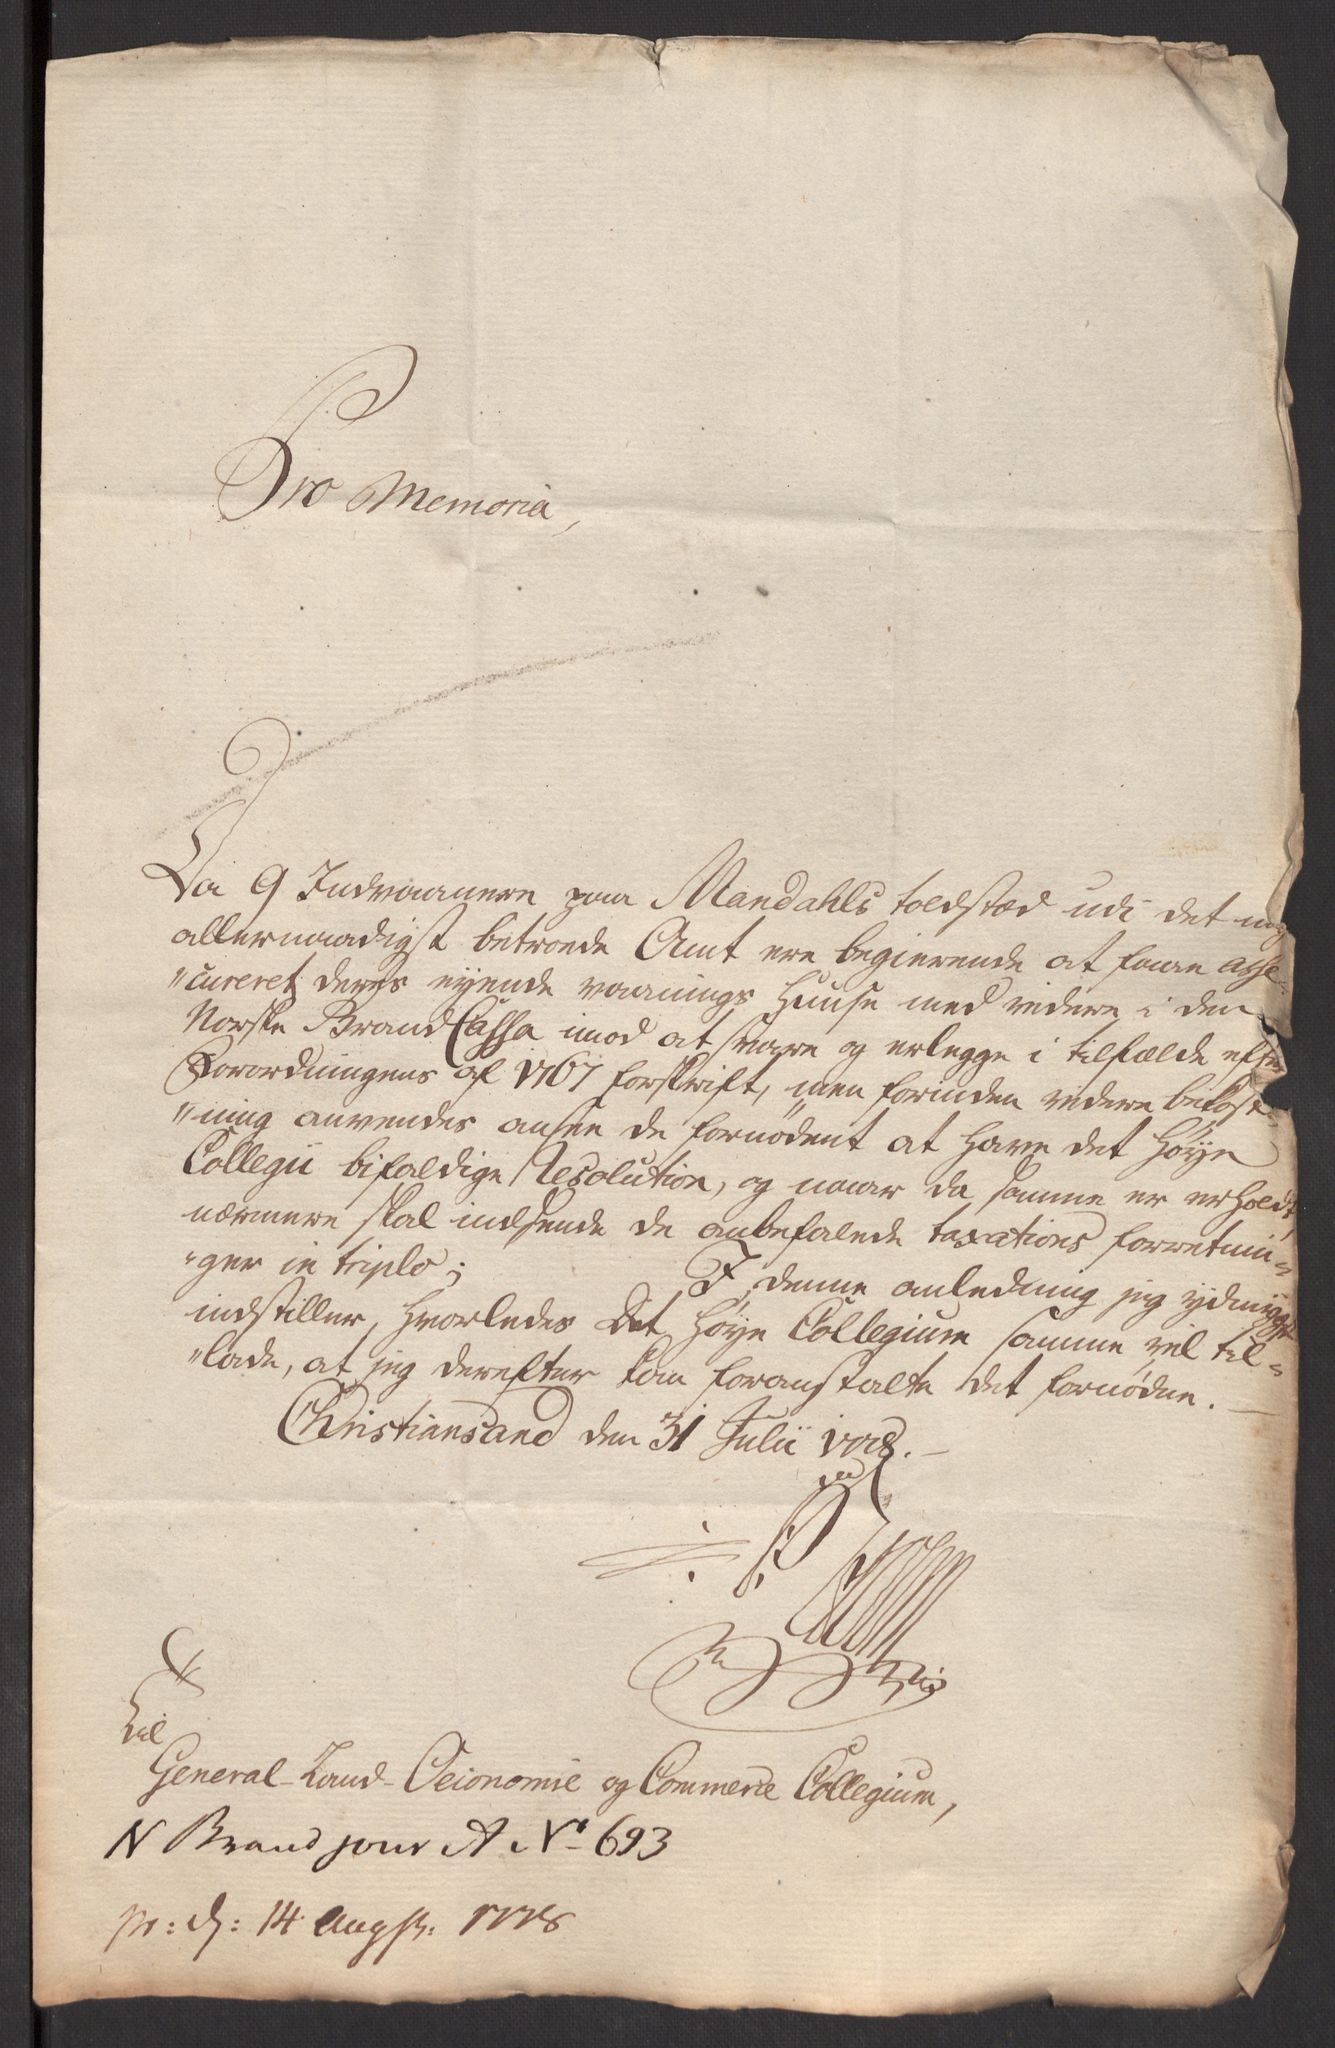 Pro Memoria,
Da 9 Indvaanere paa Mandahls toldstæd udi det mig
allernaadigst betroede Amt ere begierende at faae asse-
"cureret deres eyende vaanings Huuse med videre i den
Norske Brand Cassa imod at svare og erlegge i tilfælde efter
Forordningens af 1767 forskrift, men forinden videre bekost-
"ning anvendes ansee de fornødent at have det Høye
Collegii bifaldige Resolution, og naar da samme er erholdt,
nærmere skal indsende de anbefalede taxations forretnin-
"ger in triplo; I denne anledning jeg ydmygst
indstiller, hvorledes Det Høye Collegium samme vil til-
"lade, at jeg derefter kan foranstalte det fornødne.
Christiansand den 31 Julii 1778.
Til
General-Land-Oeconomie og Commerce Collegium,
N Brand jour A No 693
pr: d: 14 Augst: 1778